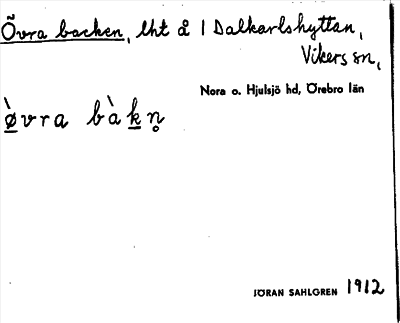 Övra backen, lht å 1 Dalkarlshyttan,
Vikers sn,
Nora o. Hjulsjö hd, Örebro län
ø̀vra bàkn̥
JÖRAN SAHLGREN 1912